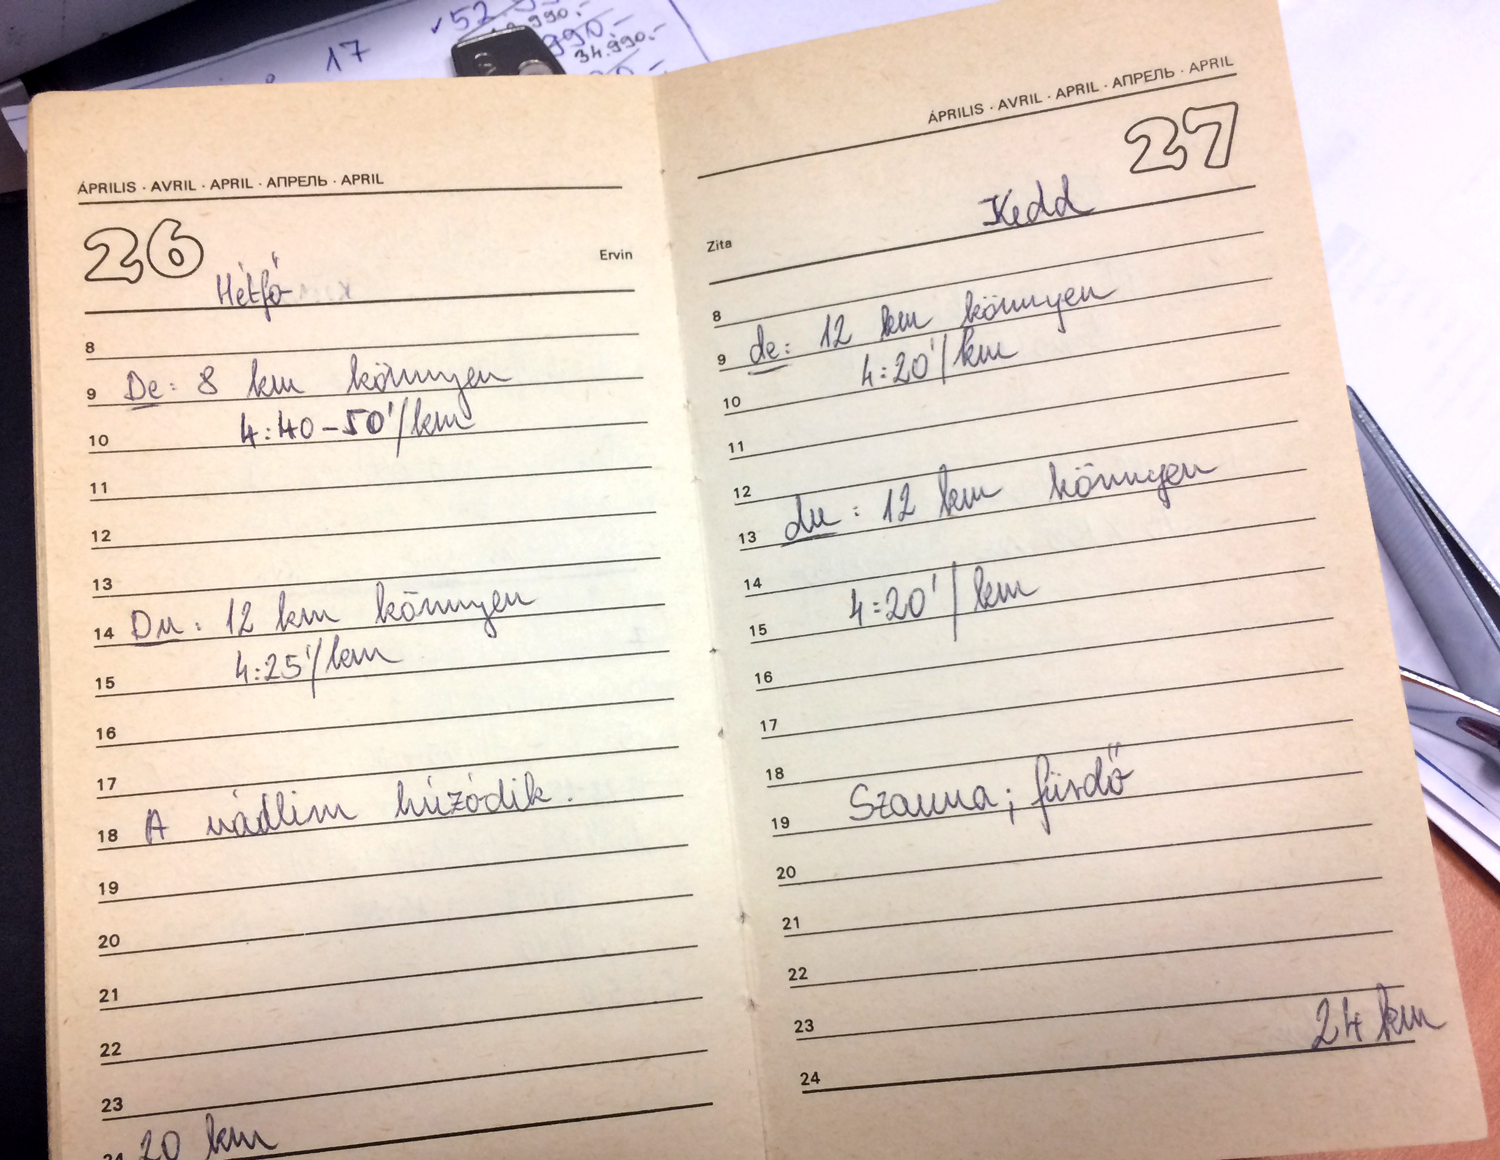 17
✓52
34.990.-
ÁPRILIS · AVRIL · APRIL · АПРЕЛЬ · APRIL
26
Ervin
Hétfő
8
9 De: 8 km könnyen
10 4:40-50'/km
11
12
13
14 Du: 12 km könnyen
15 4:25'/km
16
17
18 A vádlim húzódik.
19
20
21
22
23
24 20 km
ÁPRILIS · AVRIL · APRIL · АПРЕЛЬ · APRIL
27
Kedd
Zita
8
9 de: 12 km könnyen
10 4:20'/km
11
12
13 du: 12 km könnyen
14
15 4:20'/km
16
17
18
19 Szauna; fürdő
20
21
22
23
24 km
24